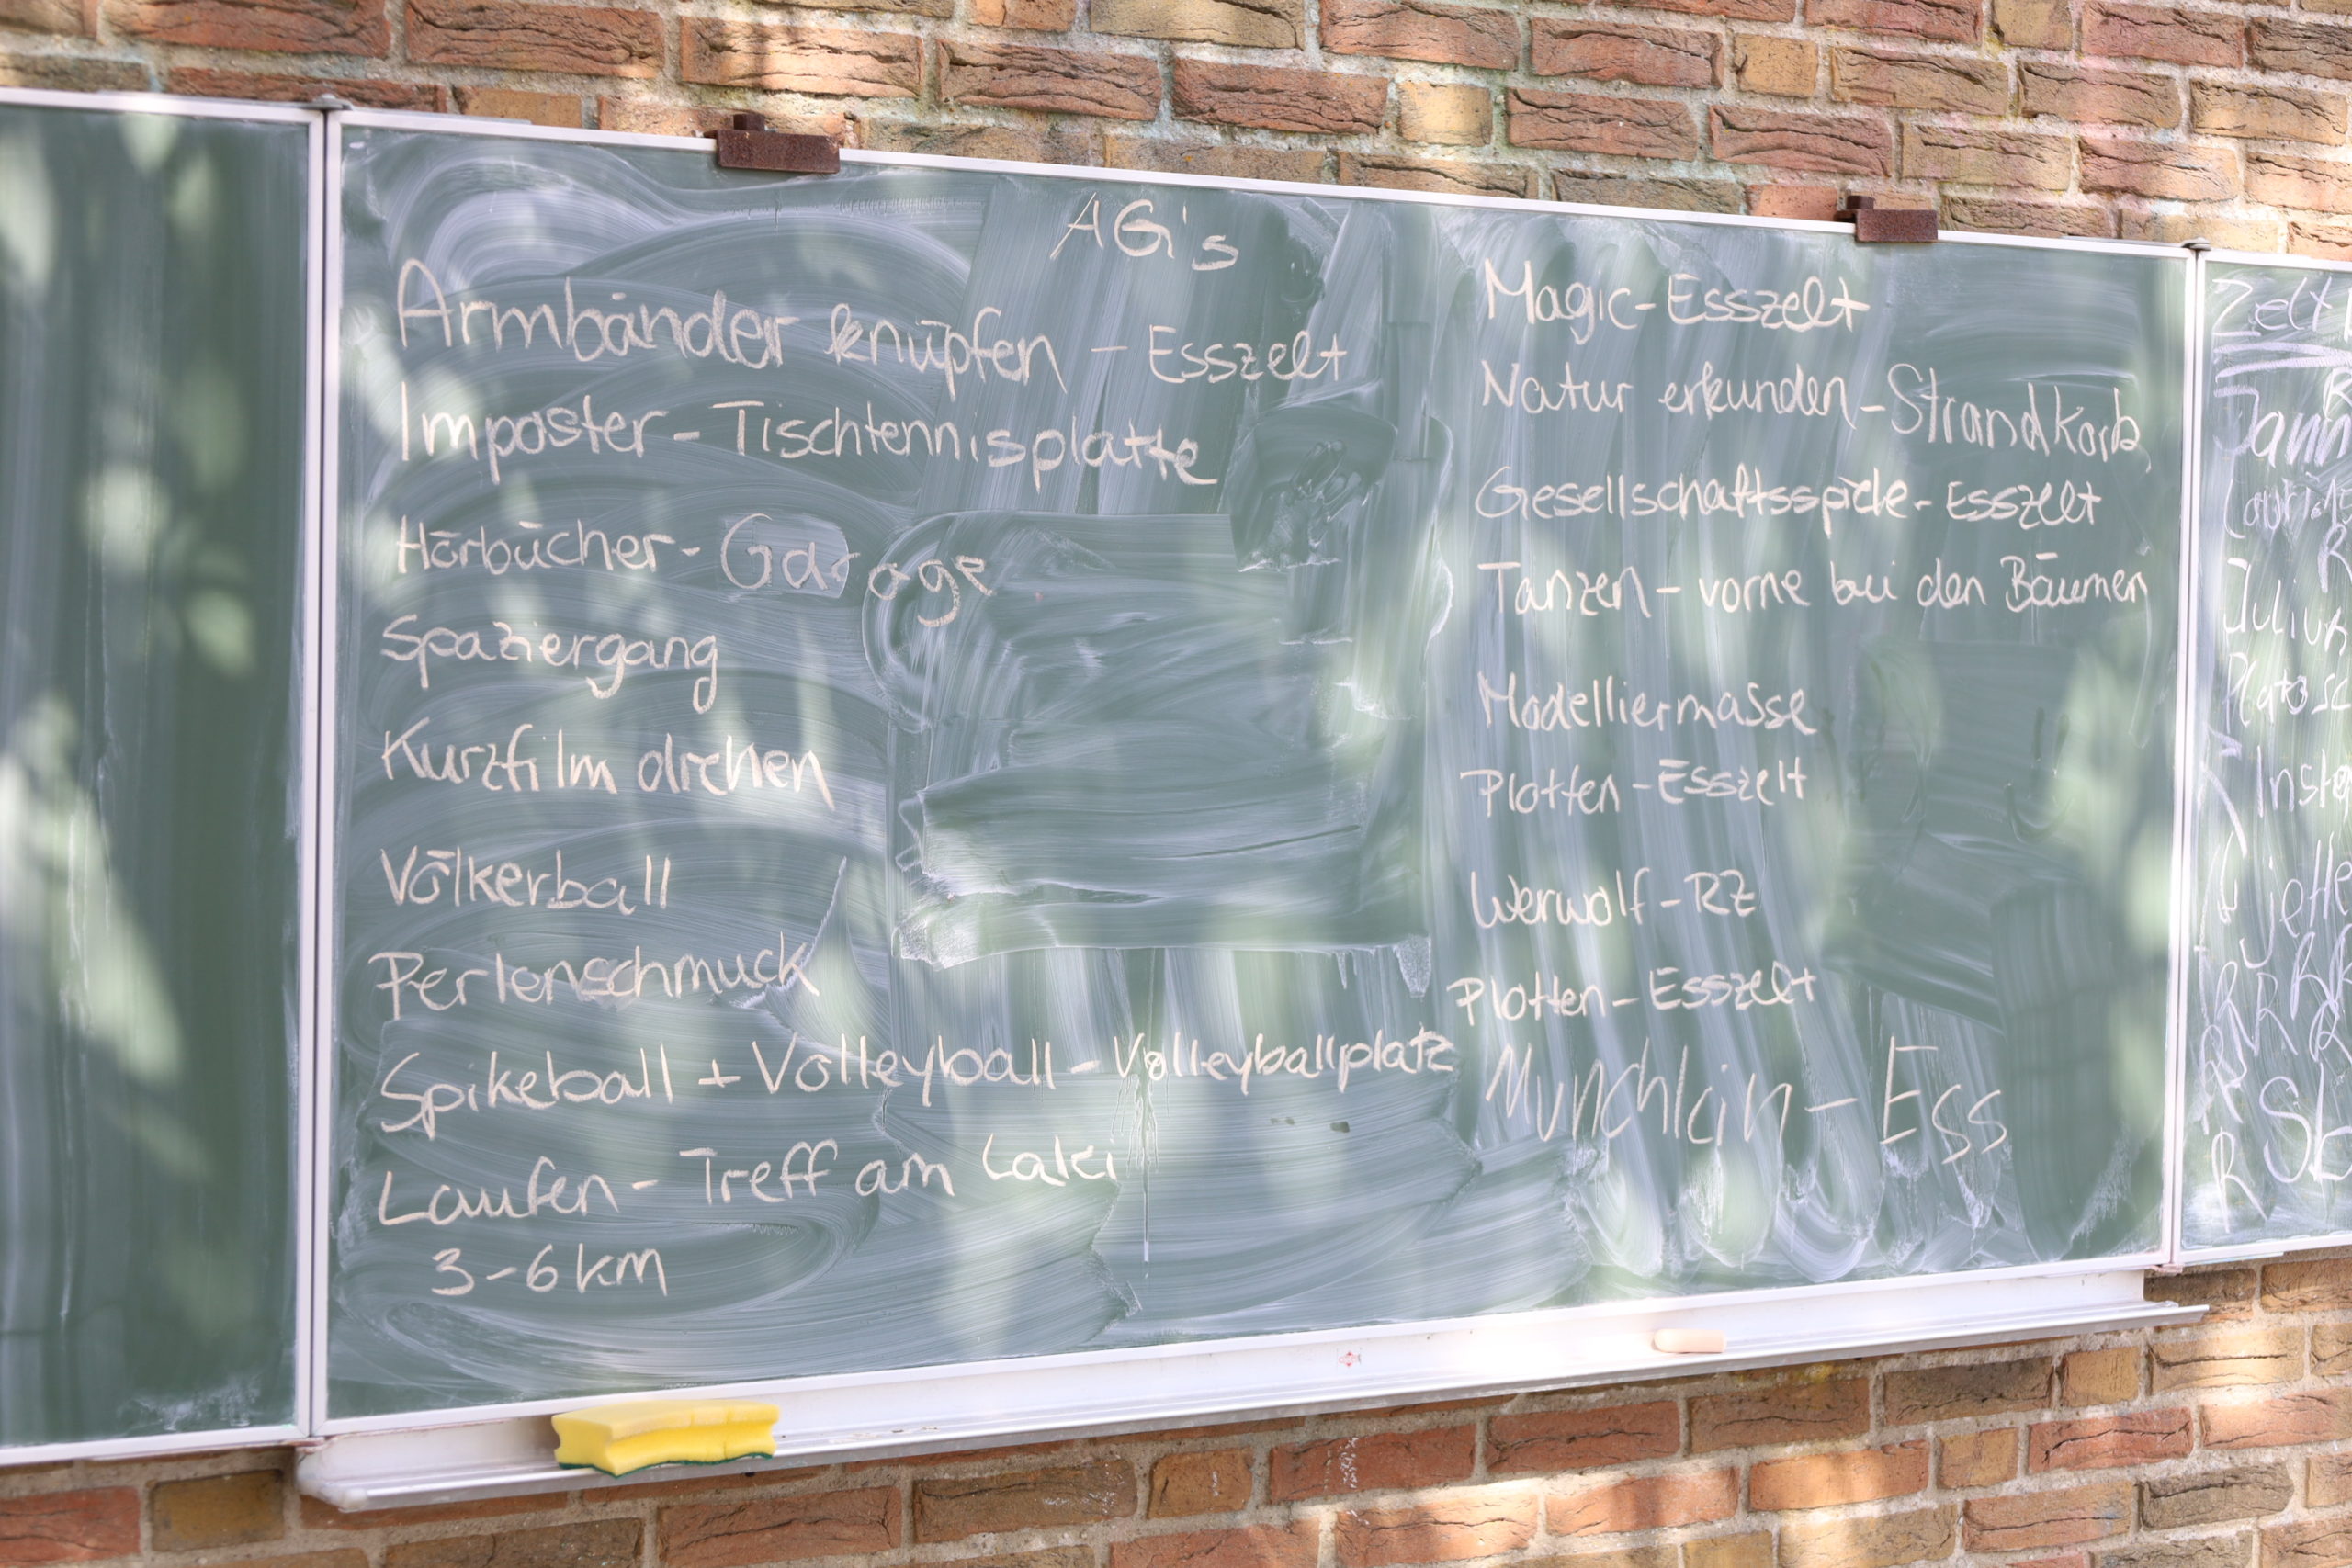 AG's
Armbänder knüpfen - Esszelt
Imposter - Tischtennisplatte
Hörbücher - Garage
Spaziergang
Kurzfilm drehen
Völkerball
Perlenschmuck
Spikeball + Volleyball - Volleyballplatz
Laufen - Treff am Laki
3-6 km
Magic - Esszelt
Natur erkunden - Strandkorb
Gesellschaftsspiele - Esszelt
Tanzen - vorne bei den Bäumen
Modelliermasse
Plotten - Esszelt
Werwolf - RZ
Plotten - Esszelt
Munchkin - Ess
Zelt